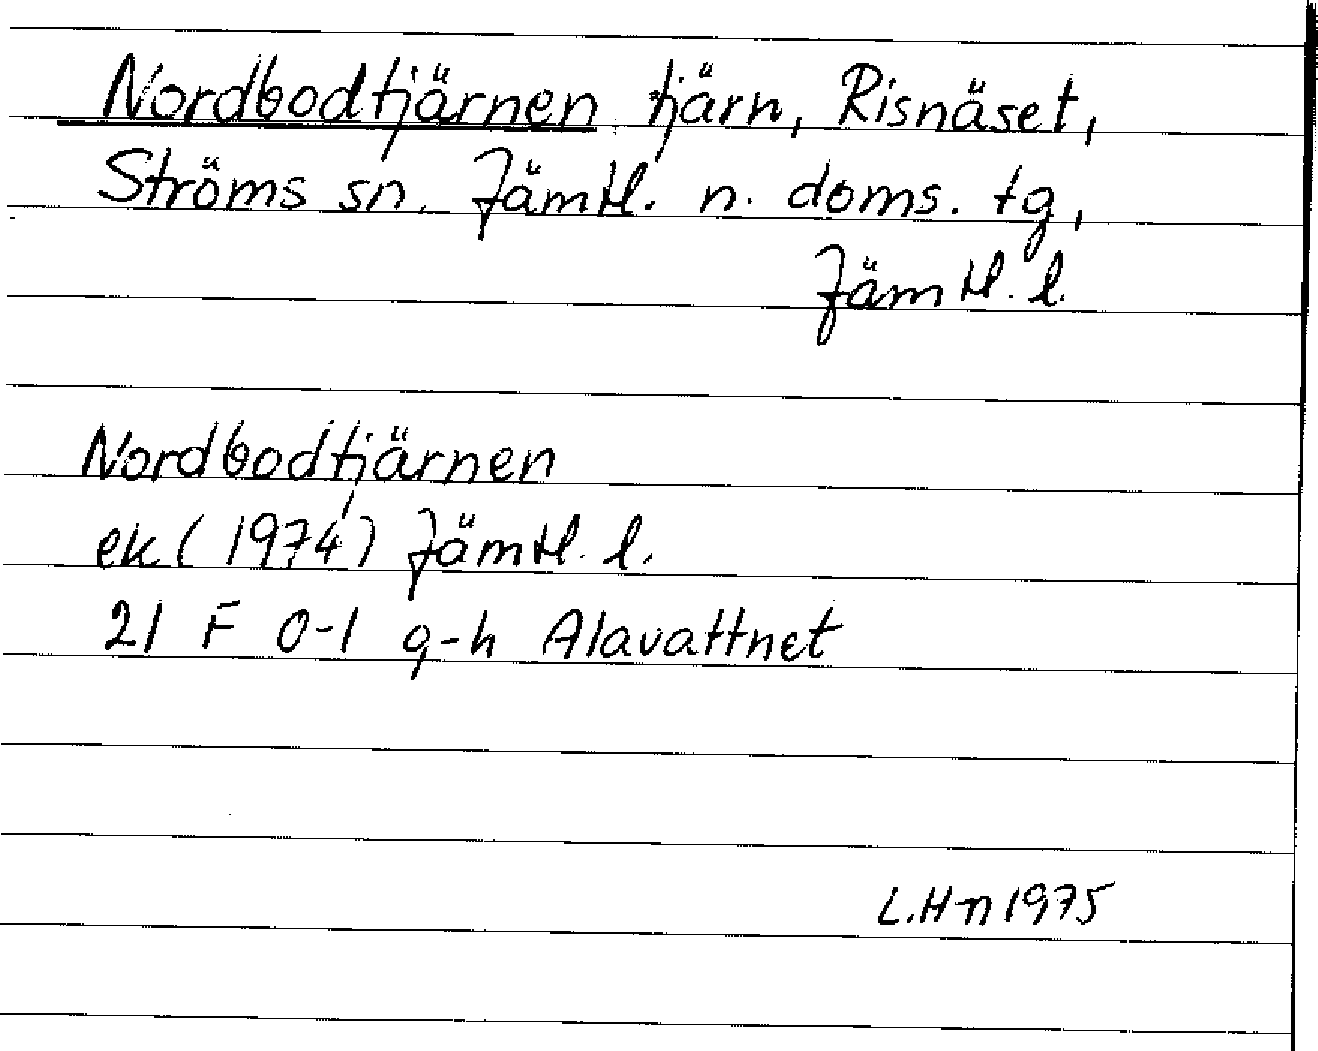 Nordbodtjärnen tjärn, Risnäset,
Ströms sn. Jämtl. n. doms. tg,
Jämtl. l.
Nordbodtjärnen
ek (1974) Jämtl. l.
21 F 0-1 g-h Alavattnet
L.H-n 1975